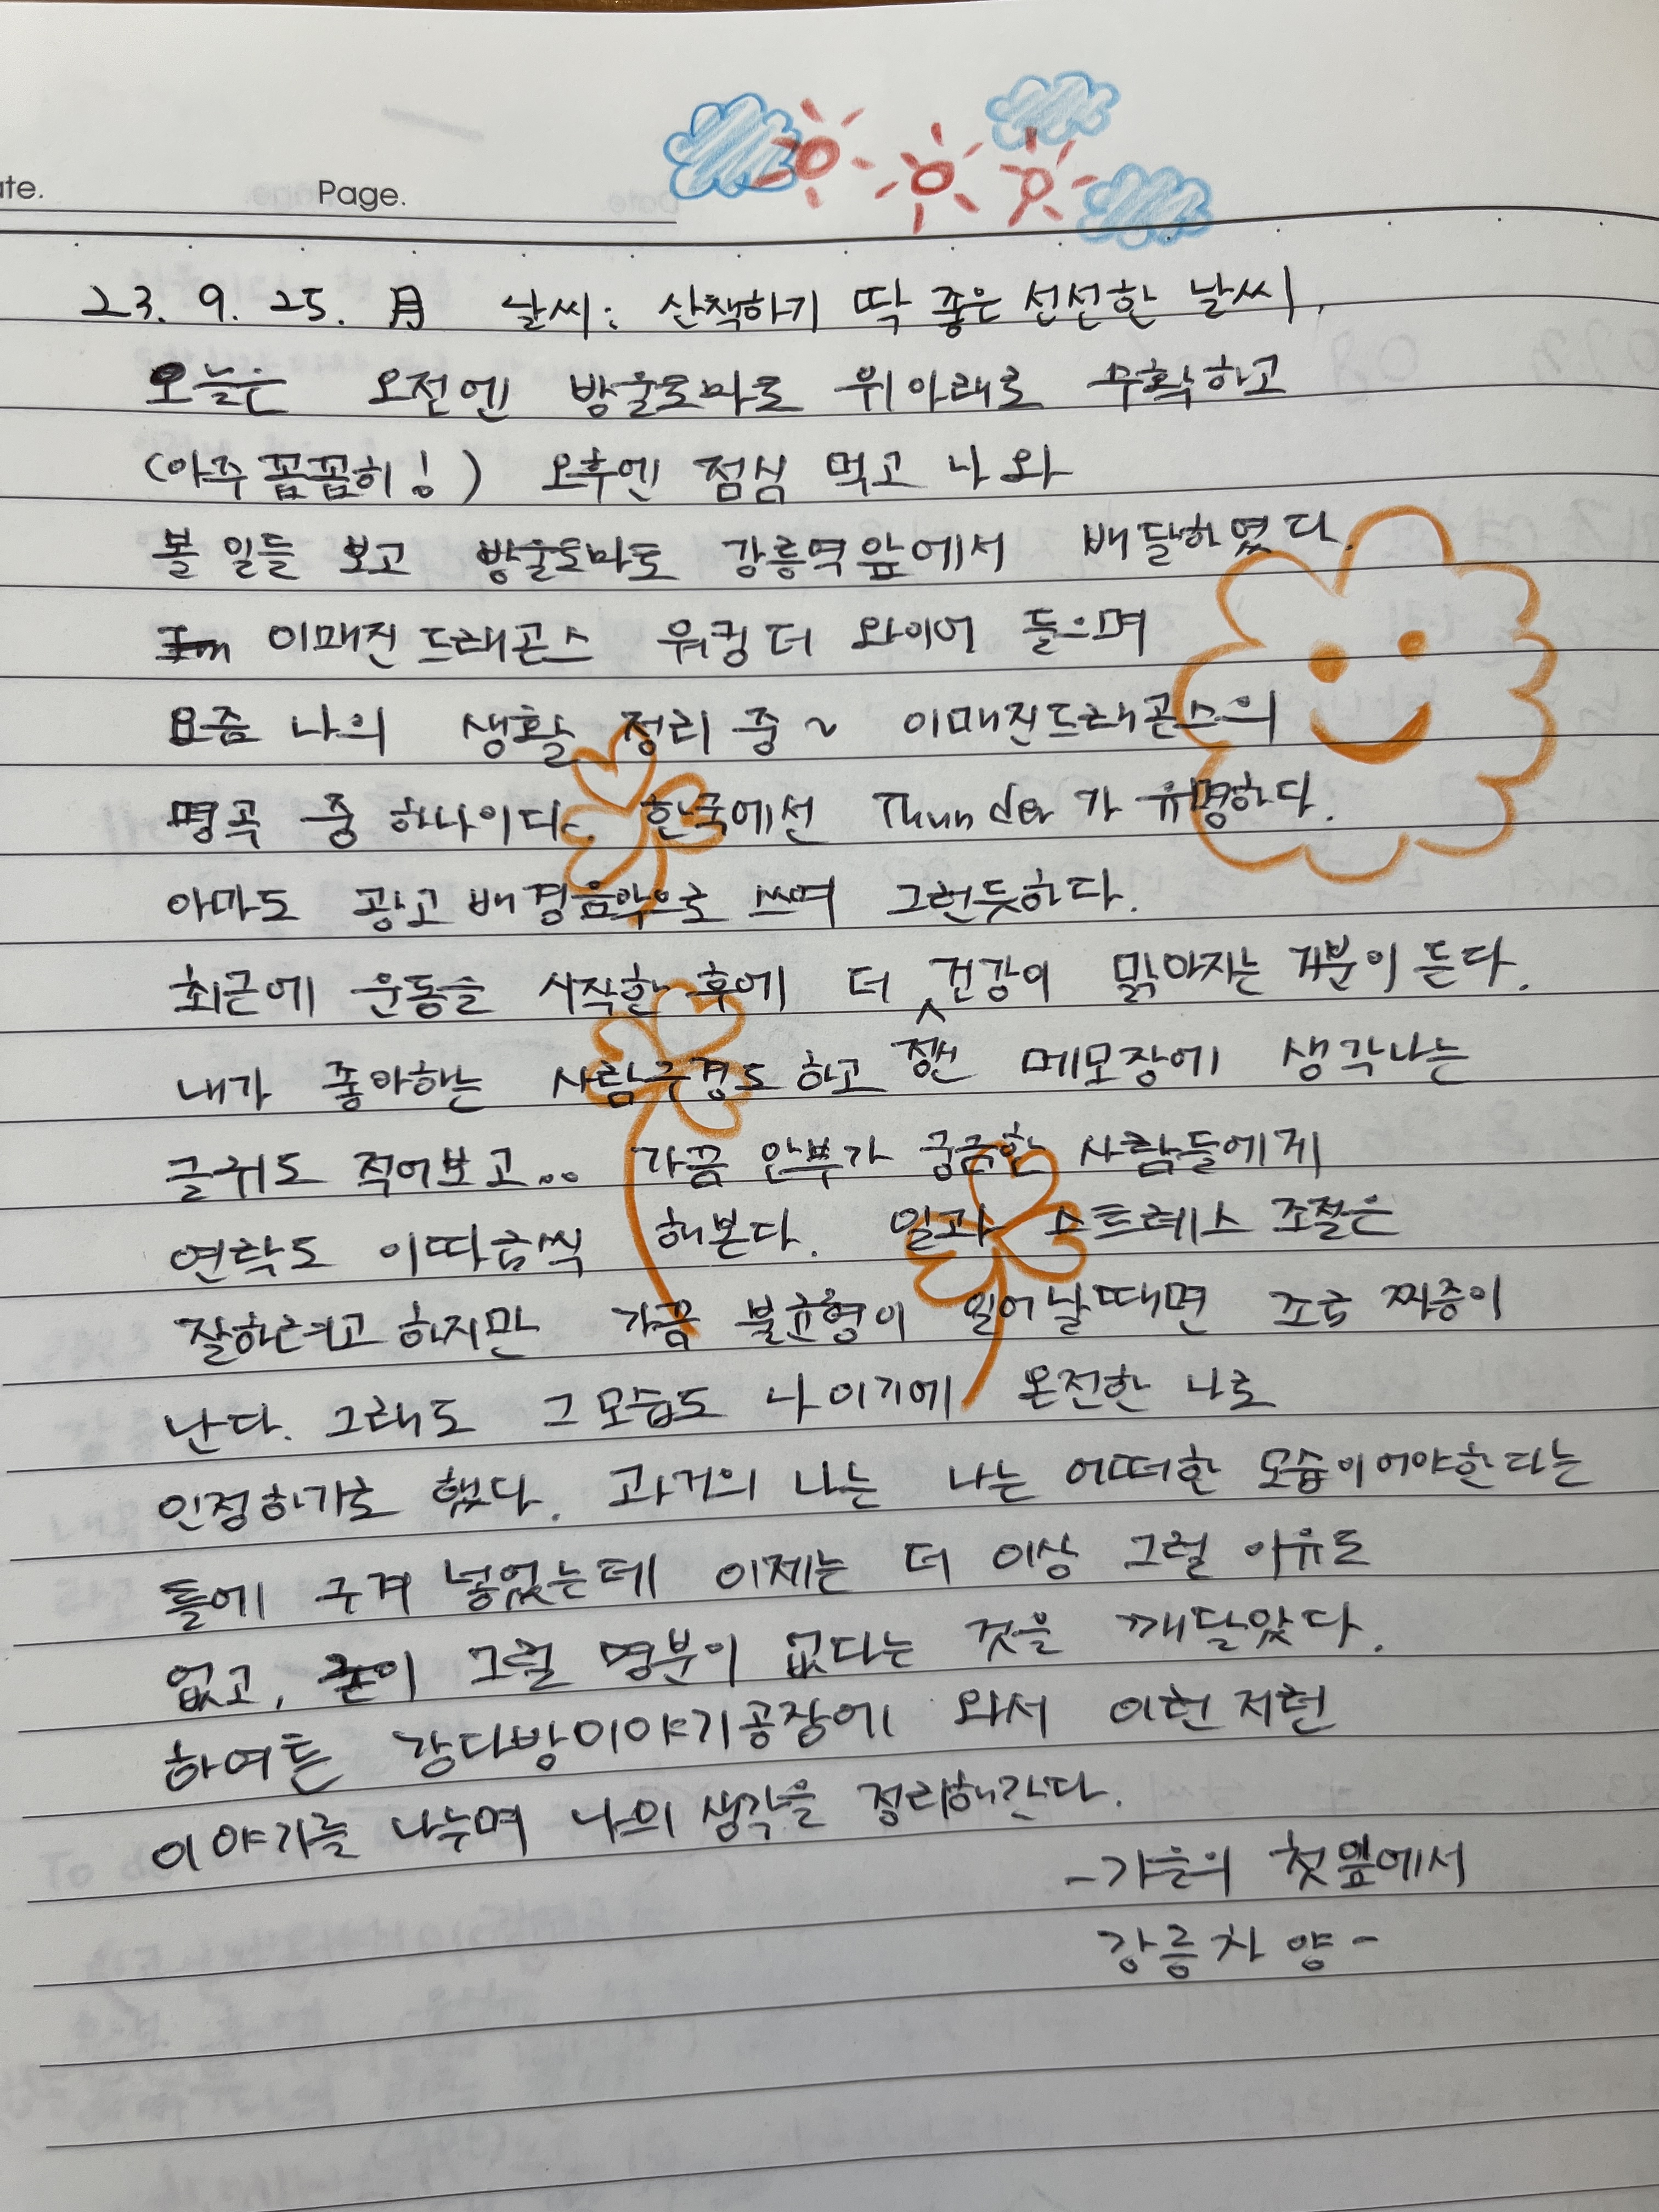 ate.
Page.
23. 9. 25. 月 날씨: 산책하기 딱 좋은 선선한 날씨.
오늘은 오전엔 방울토마토 위아래로 수확하고
(아주 꼼꼼히!) 오후엔 점심 먹고 나와
볼 일들 보고 방울토마토 강릉역앞에서 배달하였다.
이매진드래곤스 워킹더 와이어 들으며
요즘 나의 생활 정리 중~ 이매진드래곤스의
명곡 중 하나이다. 한국에선 Thunder가 유명하다.
아마도 광고 배경음악으로 쓰여 그런듯하다.
최근에 운동을 시작한 후에 더 건강이 맑아지는 기분이 든다.
정신
내가 좋아하는 사람구경도 하고 메모장에 생각나는
글귀도 적어보고.. 가끔 안부가 궁금한 사람들에게
연락도 이따금씩 해본다. 일과 스트레스 조절은
잘하려고 하지만 가끔 불균형이 일어날때면 조금 짜증이
난다. 그래도 그모습도 나이기에 온전한 나로
인정하기로 했다. 과거의 나는 나는 어떠한 모습이어야한다는
틀에 구겨 넣었는데 이제는 더 이상 그럴 이유도
없고, 그럴 명분이 없다는 것을 깨달았다.
하여튼 강다방이야기공장에 와서 이런저런
이야기를 나누며 나의 생각을 정리해간다.
-가을의 첫옆에서
강릉차양-